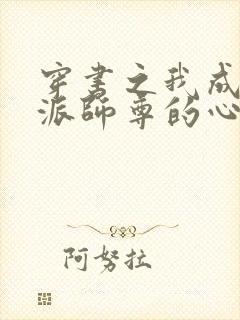 穿书之我成
派师尊的心
阿努拉